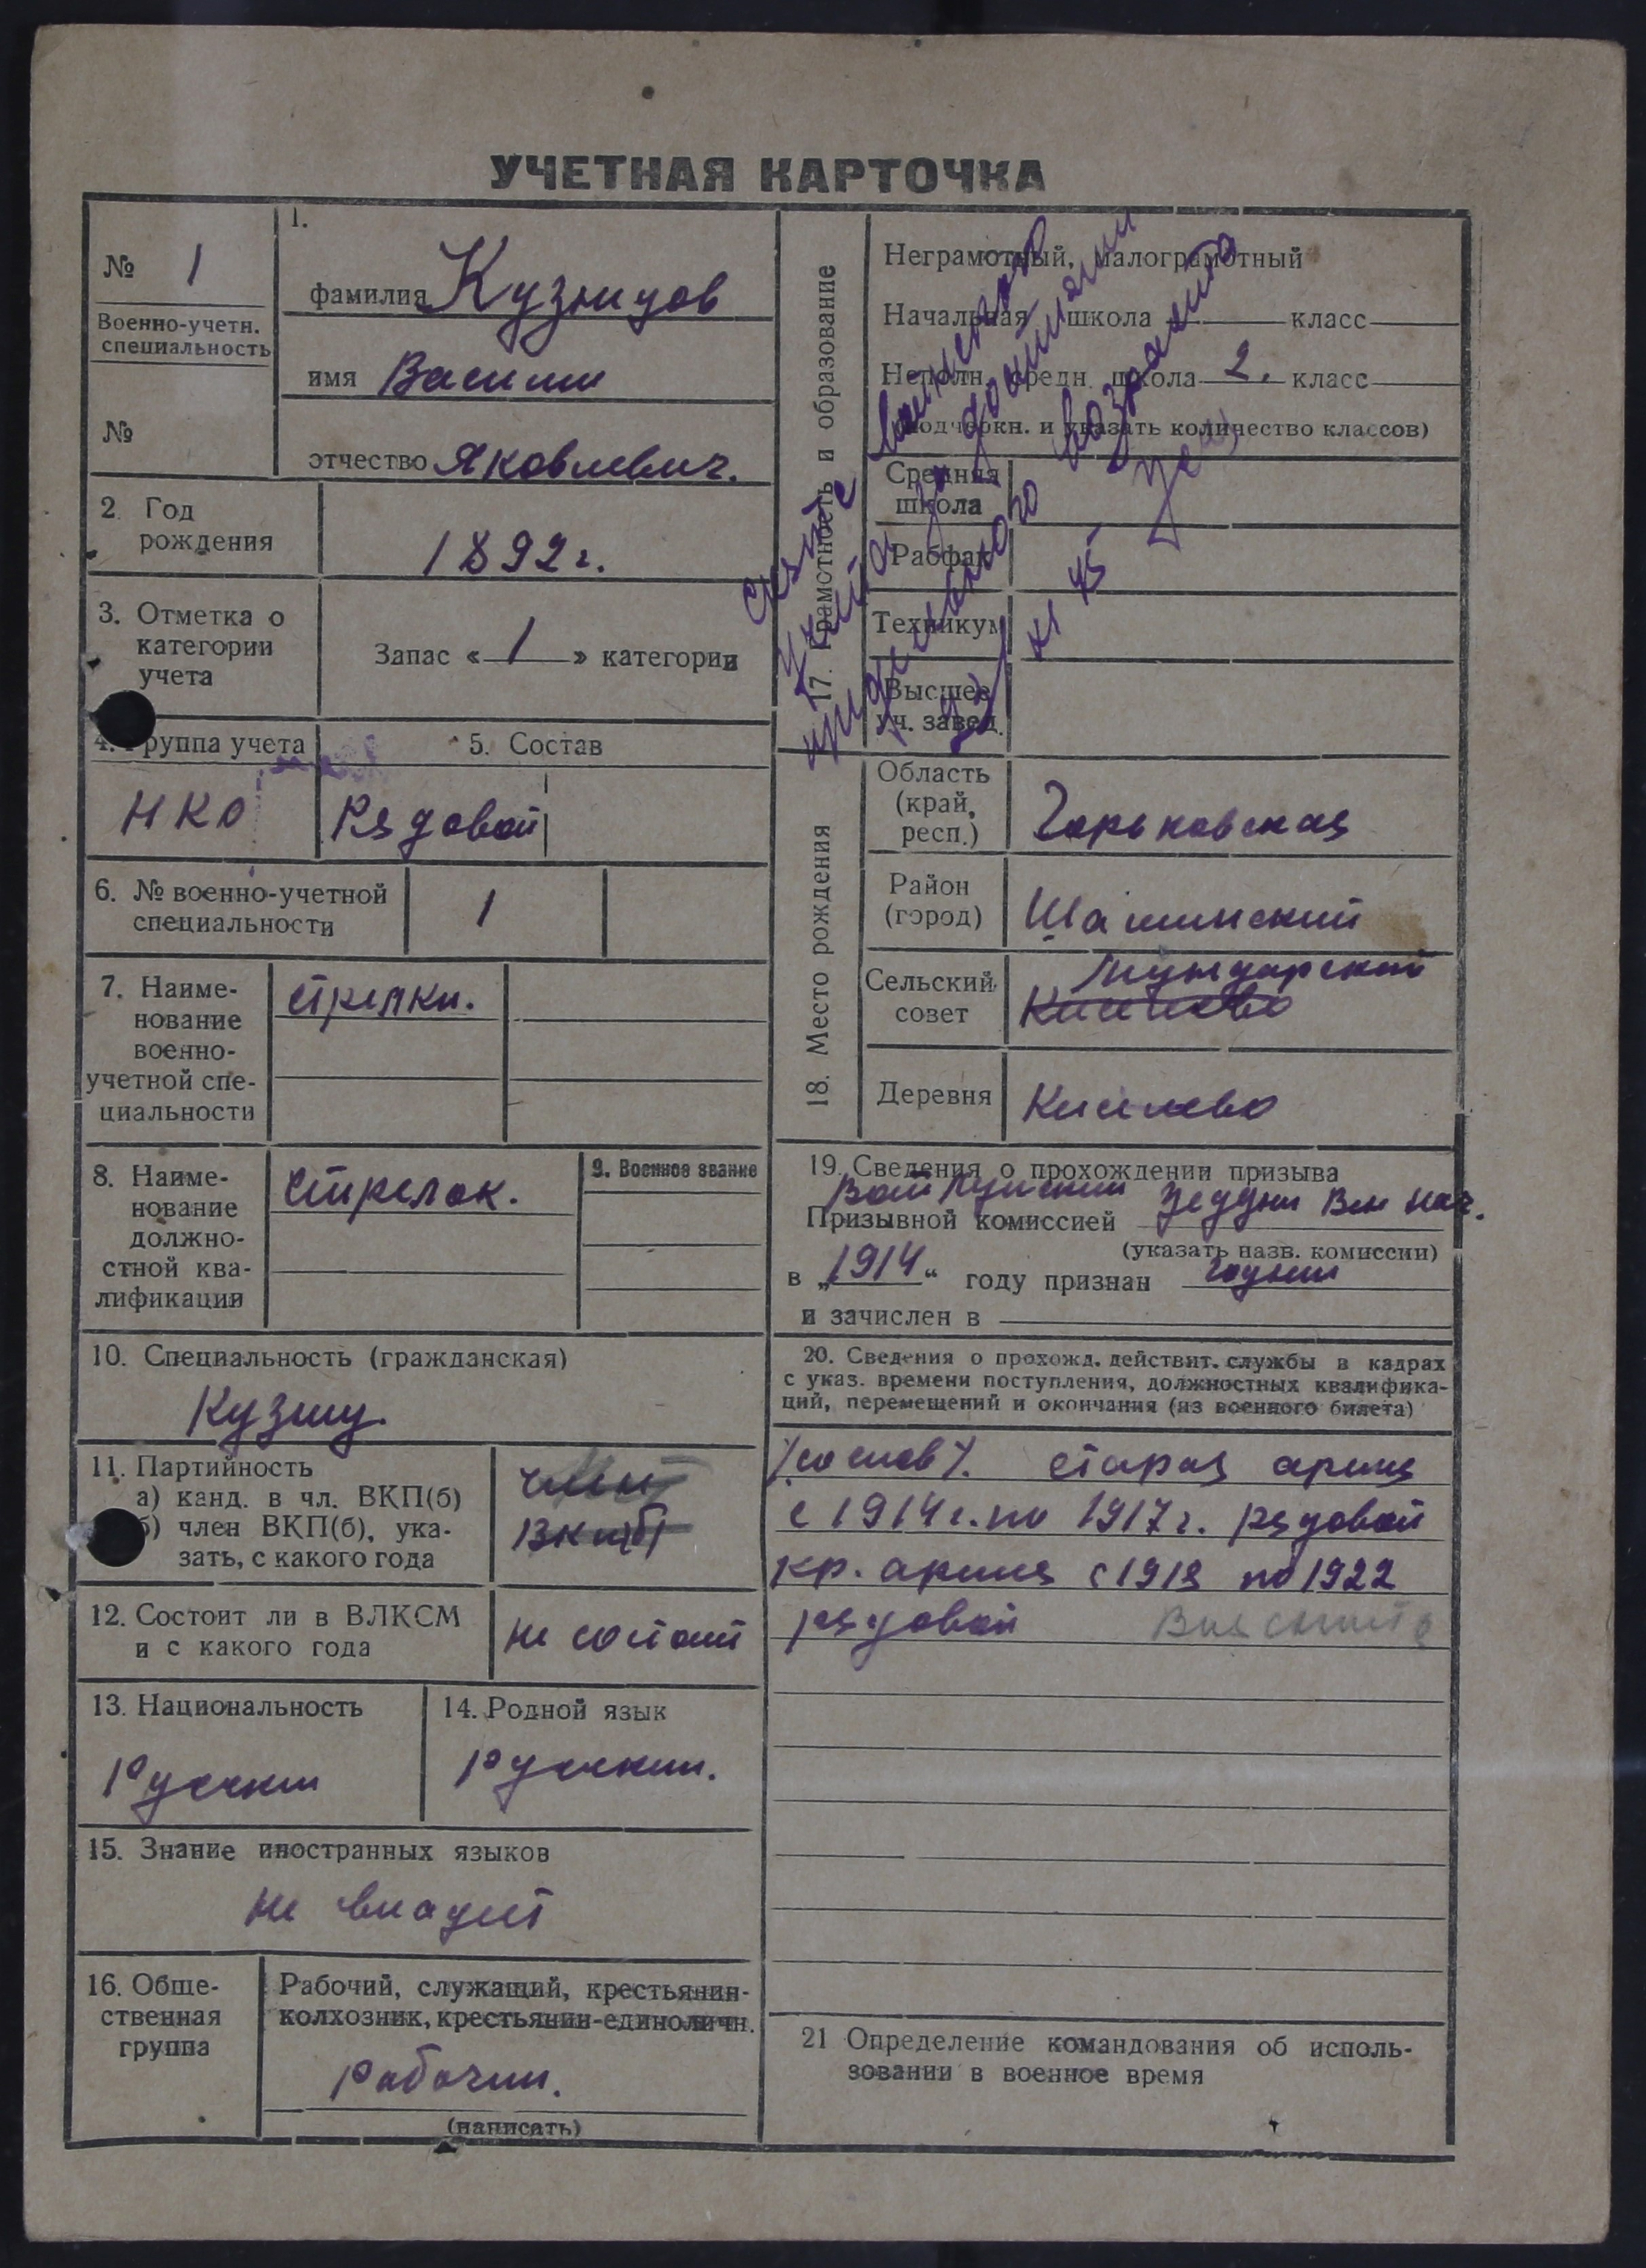 УЧЕТНАЯ КАРТОЧКА
№ 1
Военно-учетн.
специальность
№
1.
фамилия Кузнецов
имя Василий
отчество Яковлевич.
2. Год
рождения
1892 г.
3. Отметка о
категории
учета
Запас «1» категории
4. Группа учета
НКО
5. Состав
Рядовой
6. № военно-учетной
специальности
1
7. Наиме-
нование
военно-
учетной спе-
циальности
стрелки.
8. Наиме-
нование
должно-
стной ква-
лификации
стрелок.
9. Военное звание
10. Специальность (гражданская)
Кузнец
11. Партийность
а) канд. в чл. ВКП(б)
б) член ВКП(б), ука-
зать, с какого года
член
ВКП(б)
12. Состоит ли в ВЛКСМ
и с какого года
не состоит
13. Национальность
Русский
14. Родной язык
русский.
15. Знание иностранных языков
не владеет
16. Обще-
ственная
группа
Рабочий, служащий, крестьянин-
колхозник, крестьянин-единоличн.
рабочий.
(написать)
17. Грамотность и образование
Неграмотный, малограмотный
Начальная школа класс
Неполн. средн. школа 2. класс
(подчеркн. и указать количество классов)
Средняя
школа
Рабфак
Техникум
Высшее
уч. завед.
Снят с воинского
учета за достижением
предельного возраста
18. Место рождения
Область
(край,
респ.)
Горьковская
Район
(город)
Сельский
совет
Деревня
Киселево
19. Сведения о прохождении призыва
Призывной комиссией
(указать назв. комиссии)
в „1914“ году признан годным
и зачислен в
20. Сведения о прохожд. действит. службы в кадрах
с указ. времени поступления, должностных квалифика-
ций, перемещений и окончания (из военного билета)
/со слов/. старая армия
с 1914 г. по 1917 г. рядовой
кр. армия с 1918 по 1922
рядовой Выяснить
21 Определение командования об исполь-
зовании в военное время